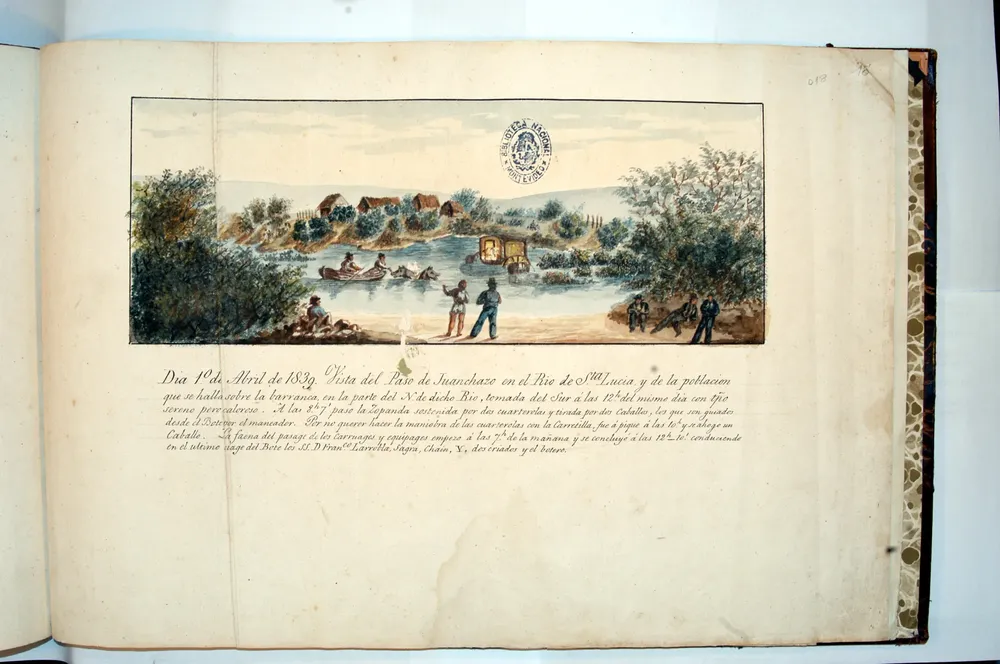 BIBLIOTECA NACIONAL
MONTEVIDEO
Dia 1º de Abril de 1839. Vista del Paso de Juanchazo en el Rio de Sta Lucia y de la poblacion
que se halla sobre la barranca, en la parte del N. de dicho Rio, tomada del Sur á las 12h del mismo dia con tpo
sereno pero caloroso. A las 8h 7' pasó la Zopanda sostenida por dos cuarterolas y tirada por dos Caballos, los que son guiados
desde el Bote por el maneador. Por no querer hacer la maniobra de las cuarterolas con la Carretilla, fue á pique á las 10h y se ahogo un
Caballo. La faena del pasage de los Carruages y equipages empeso á las 7h de la mañana y se concluyó á las 12h 10' conduciendo
en el ultimo viage del Bote los SS. D. Franco Larrobla, Sagra, Chain, Y, dos criados y el botero.